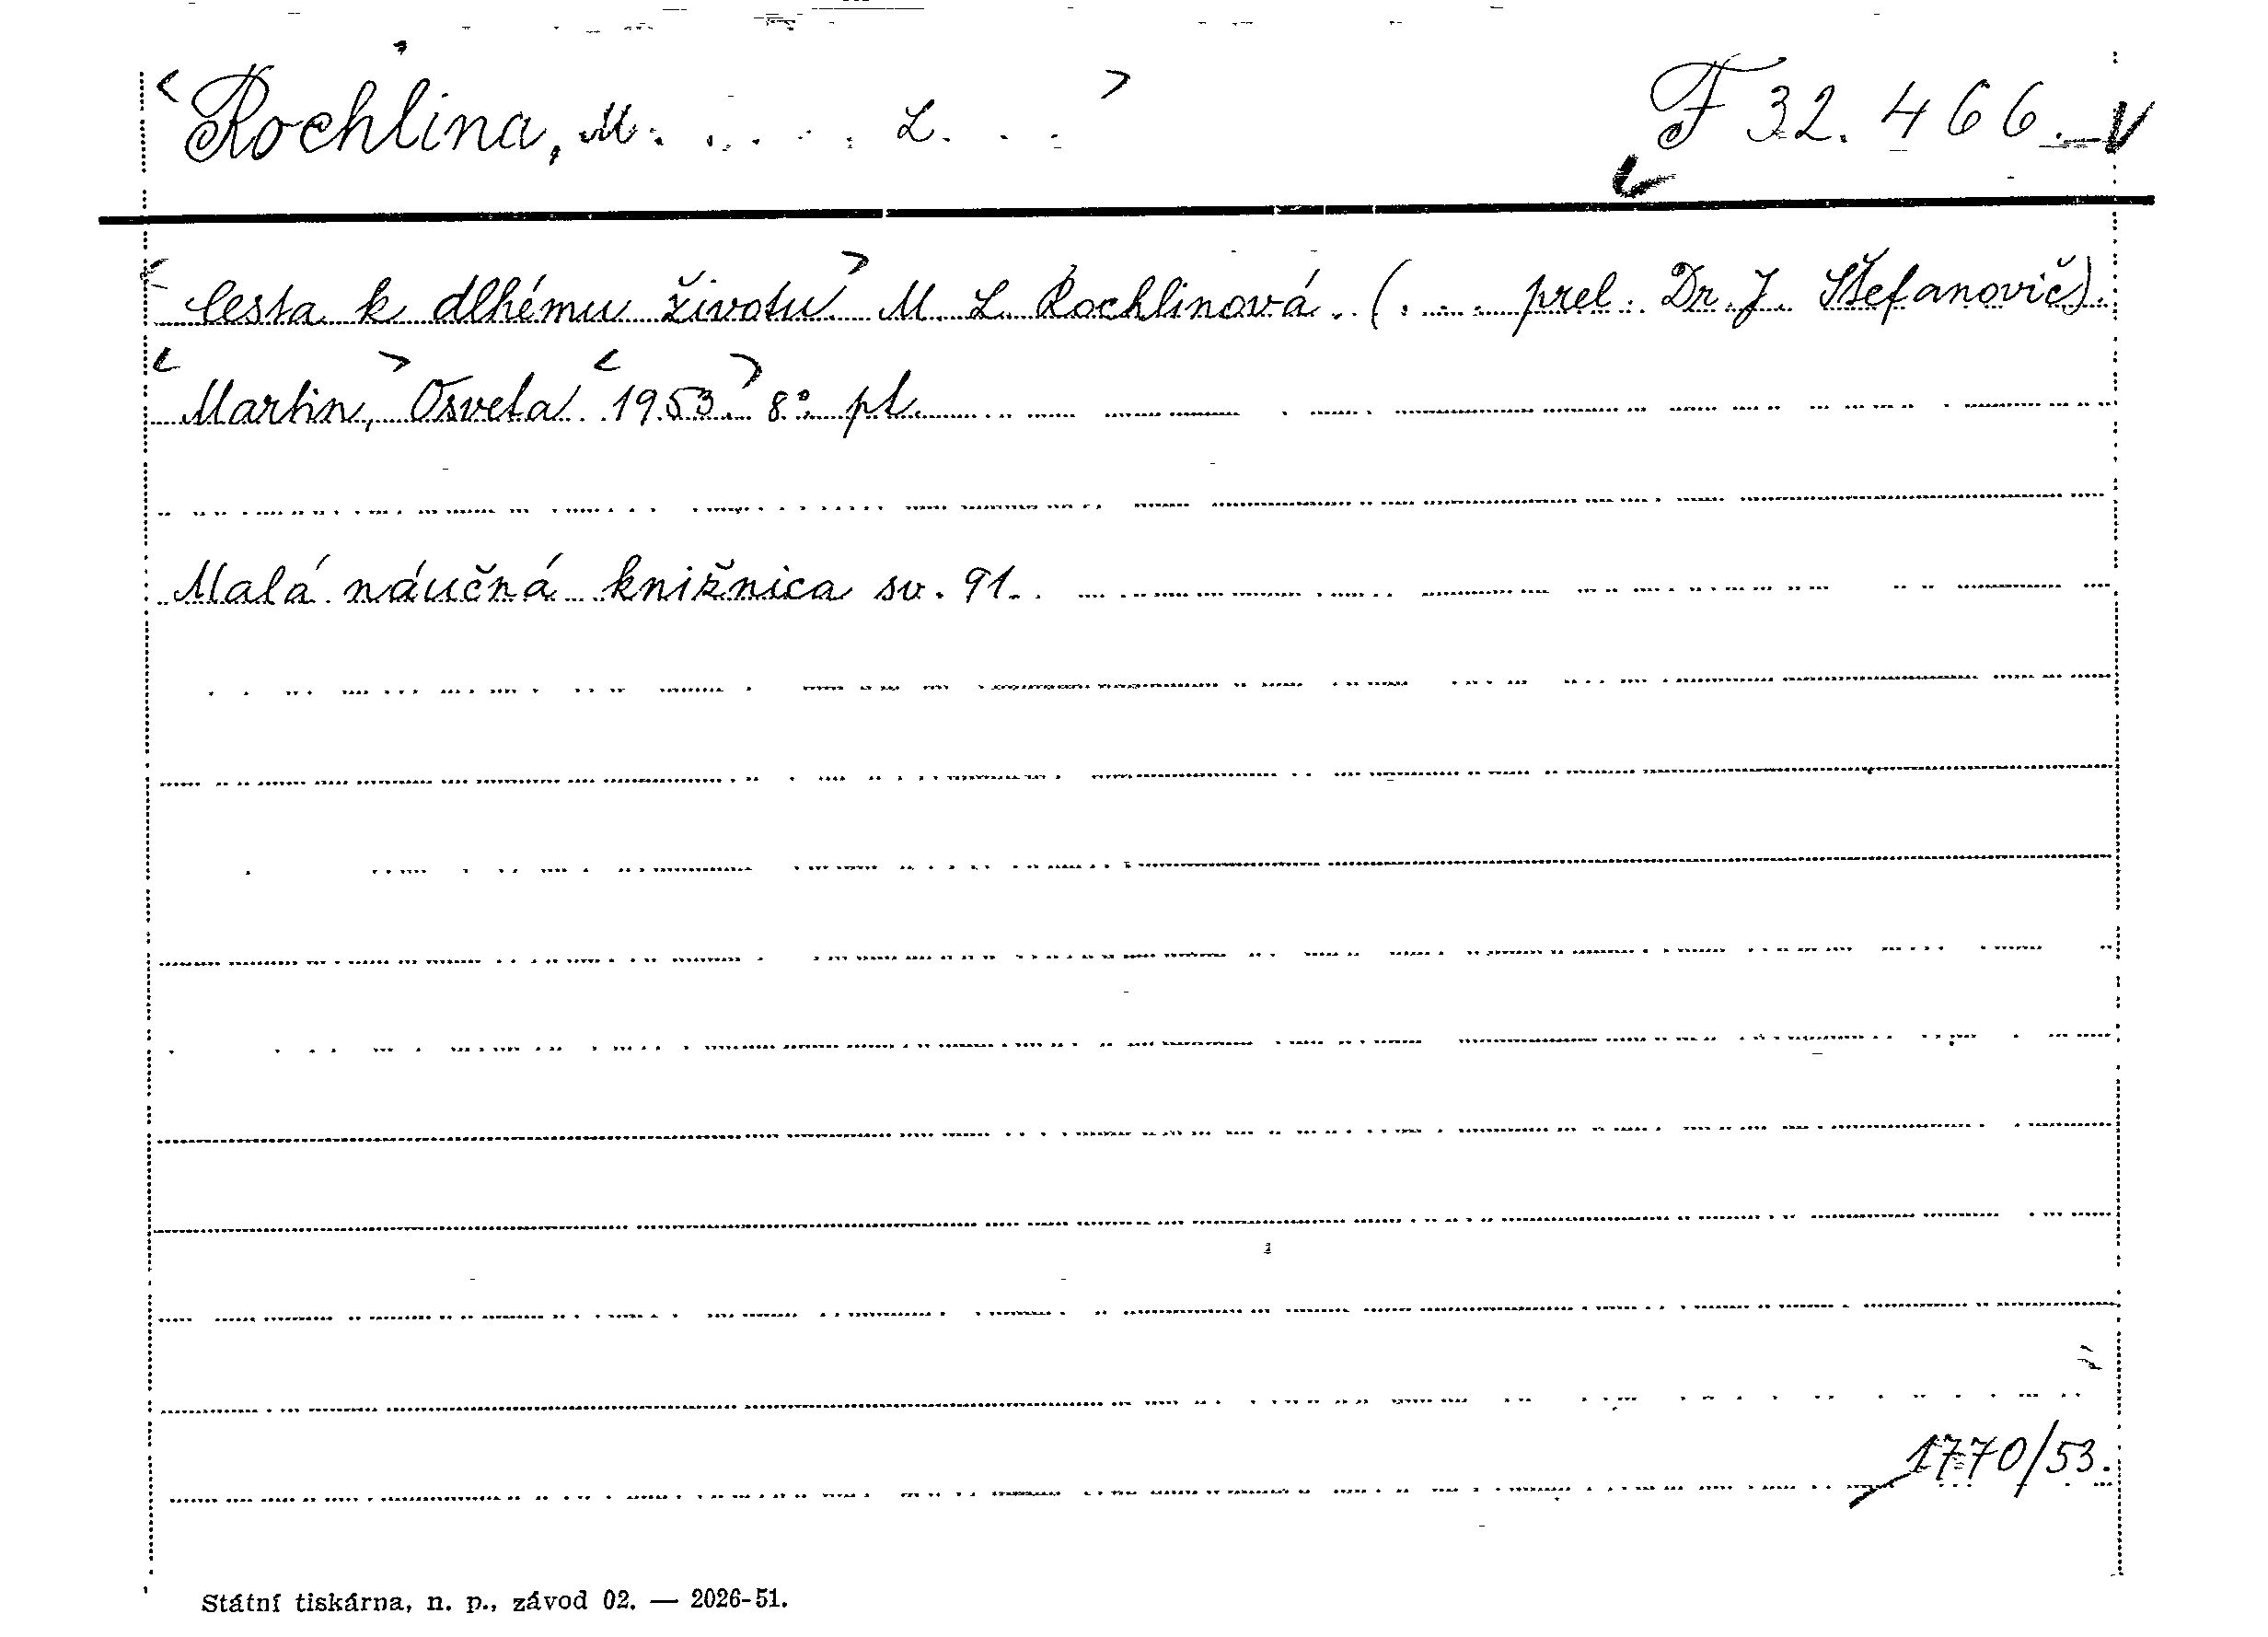 Rochlina, M. . . . . . L. . . F 32.466.
Cesta k dlhému životu. M. L. Rochlinová. (. . . prel. Dr. J. Štefanovič).
Martin, Osveta 1953. 8° pl.
Malá náučná knižnica sv. 91.
1770/53.
Státní tiskárna, n. p., závod 02. — 2026-51.